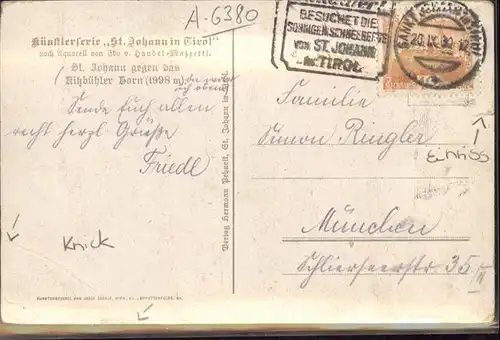 A-6380
BESUCHET DIE
SONNIGEN SCHNEEBERGE
VON ST. JOHANN
IN TIROL
20.IX.30
Künstlerserie „St. Johann in Tirol"
nach Aquarell von Edo v. Handel-Mazzetti.
St. Johann gegen das
Kitzbühler Horn (1998 m)
Sende Euch allen
recht herzl Grüße
Friedl
Verlag Hermann Pehweil, St. Johann in
Familie
Simon Ringler
Einriss
München
Knick
Schlierseerstr. 35/